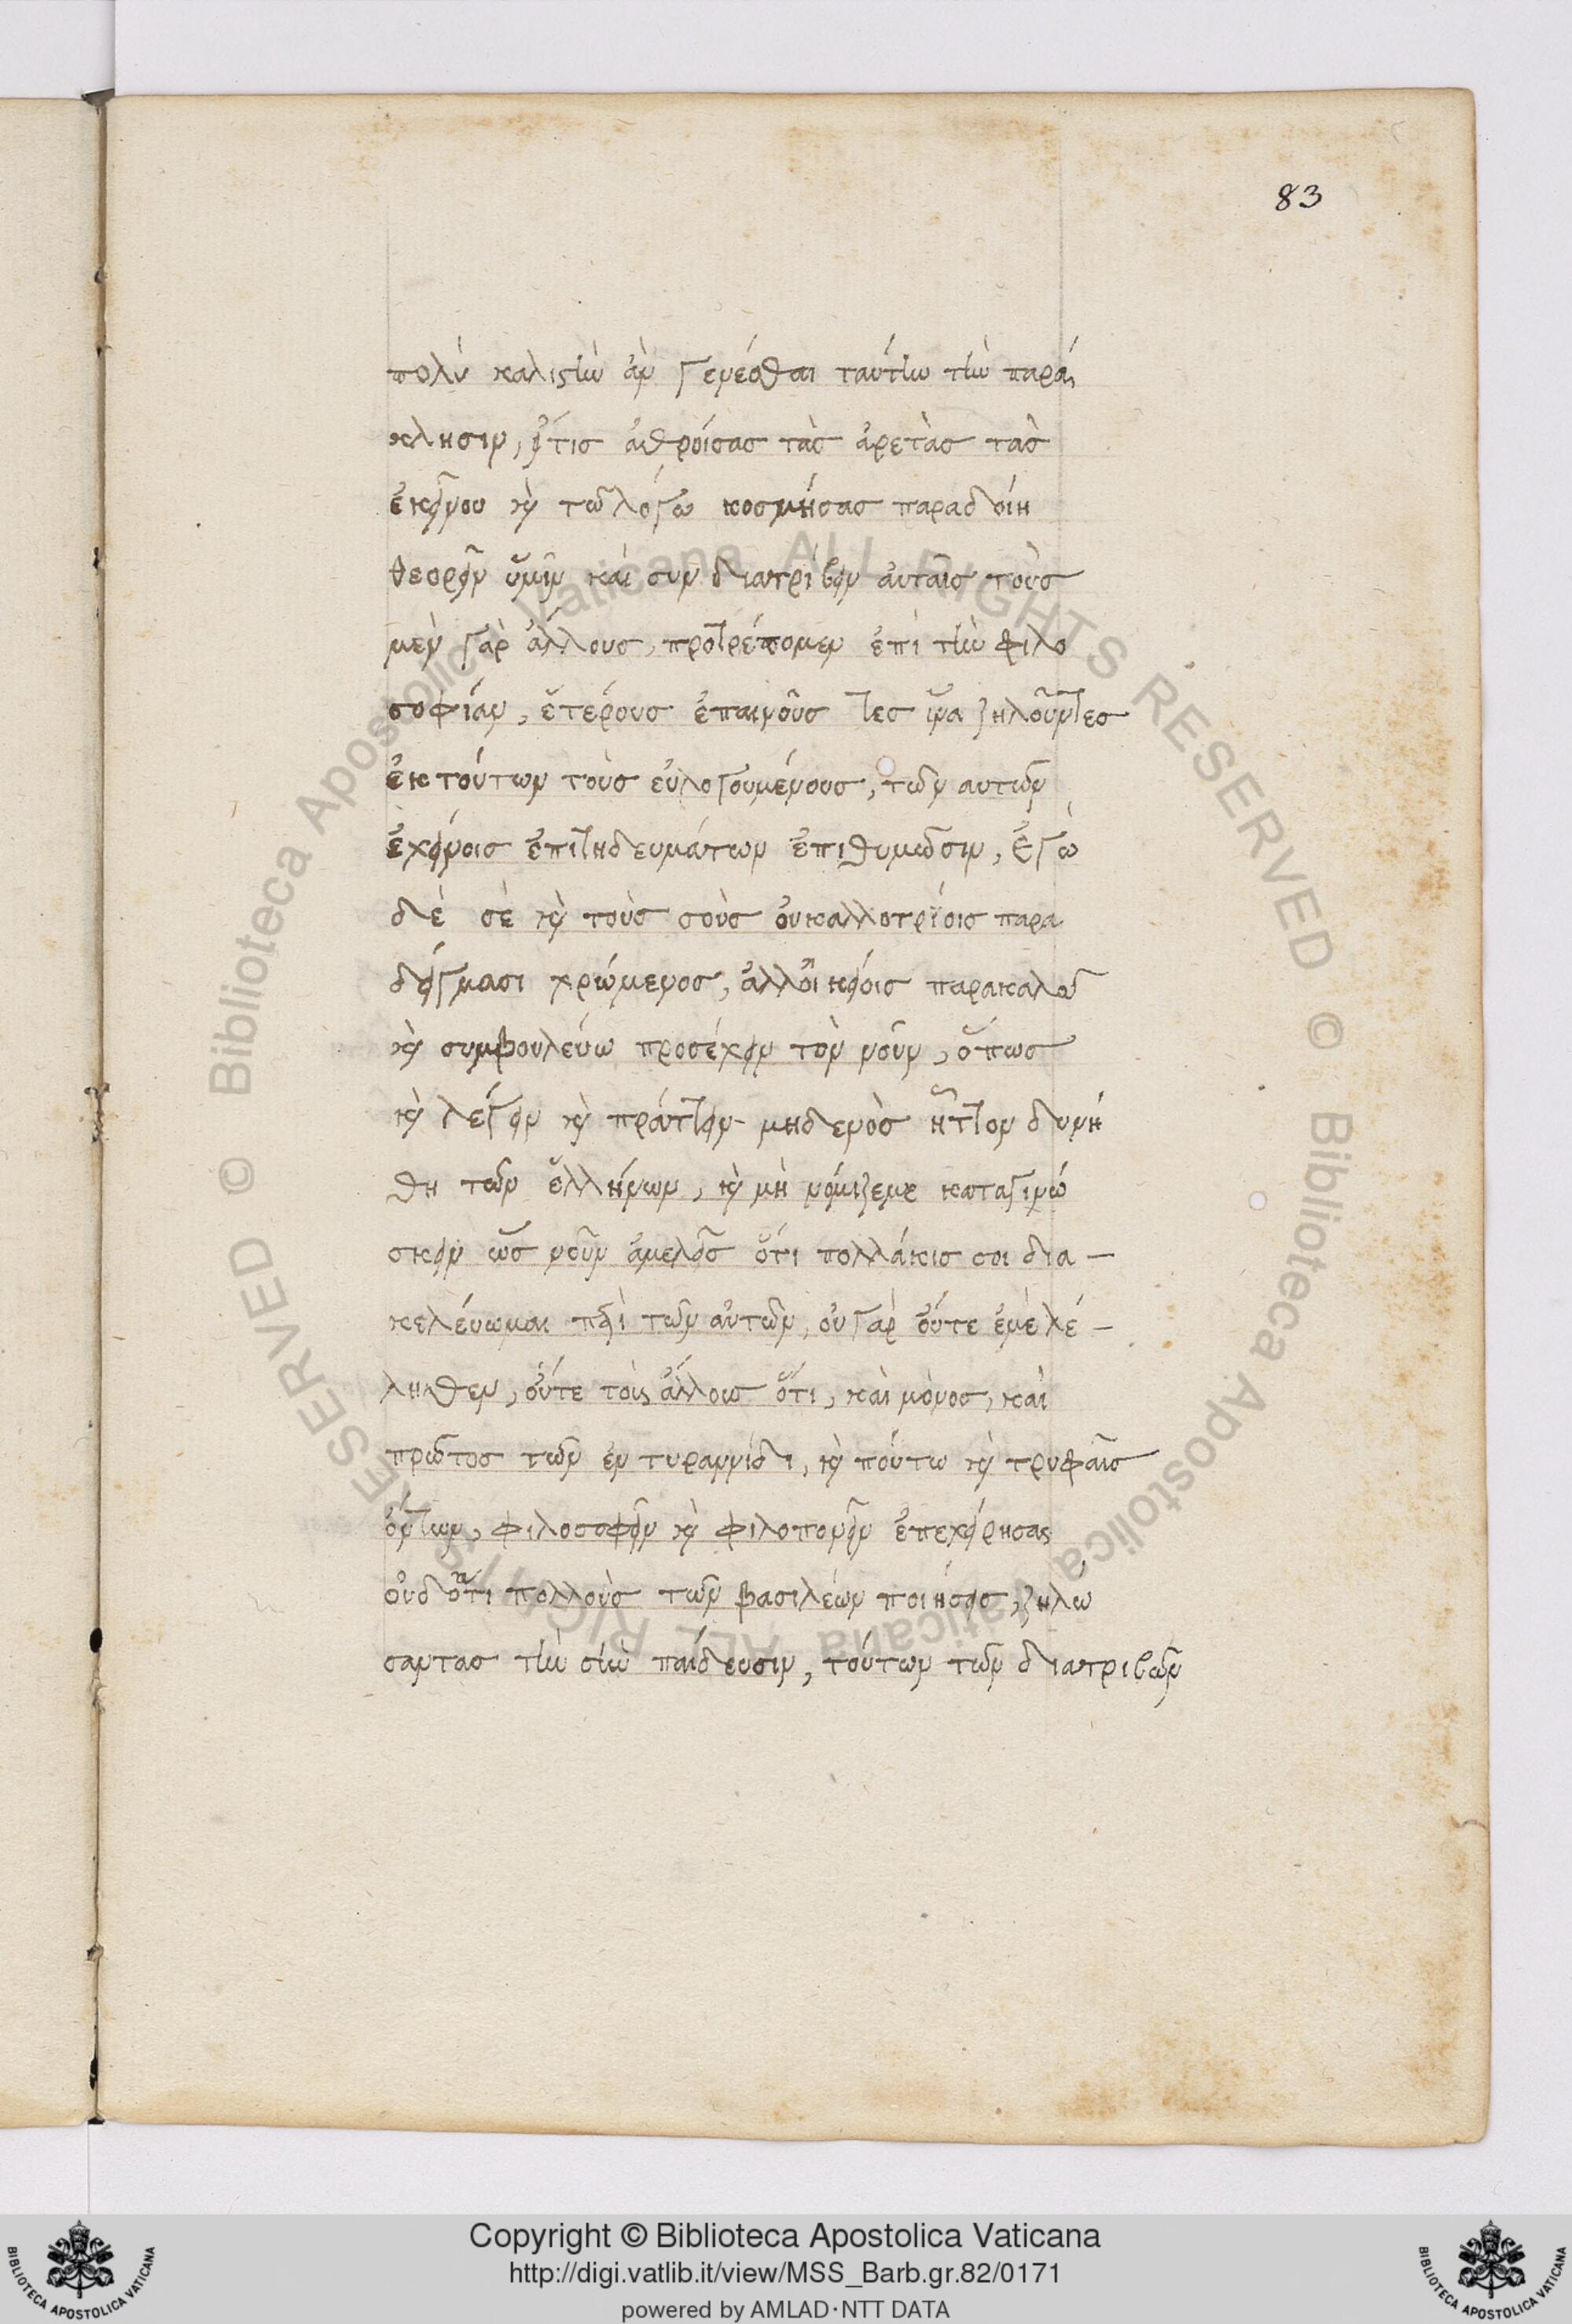 83
πολὺ καλιστὴν ἂν γενέσθαι ταύτην τὴν παρά
κλησιν, εἴτισ ἀθροίσασ τὰσ ἀρετὰσ τὰσ
ἐκείνου καὶ τῶ λόγω κοσμήσασ παραδοίη
θεορεῖν ὑμῖν καὶ συνδιατρίβειν αὐταῖσ τοὺσ
μὲν γὰρ ἄλλουσ, προτρέπομεν ἐπὶ τὴν φιλο
σοφίαν, ἑτέρουσ ἐπαινοῦσ τεσ ἵνα ζηλοῦντεσ
ἐκτούτων τοὺσ εὐλογουμένουσ, τῶν αυτῶν
ἐχείνοισ ἐπιτηδευμάτων ἐπιθυμῶσιν, Ἐγὼ
δὲ σὲ καὶ τοὺσ σοὺσ οὐκαλλοτρίοισ παρα
δείγμασι χρώμενοσ, ἀλλοἰκείοισ παρακαλῶ
καὶ συμβουλεύω προσέχειν τὸν νοῦν, ὅπωσ
καὶ λέγειν καὶ πράττειν μηδενὸσ ἧττον δυνή
θη τῶν ἑλλήνων, καὶ μὴ νόμιζεμε καταγινώ
σκειν ὡσ νοῦν ἀμελεῖσ ὅτι πολλάκισ σοι δια-
κελεύωμαι περὶ τῶν αὐτῶν, οὐγὰρ οὔτε ἐμὲ λέ-
ληθεν, οὔτε τοὺς ἄλλουσ ὅτι, καὶ μόνοσ, καὶ
πρῶτοσ τῶν ἐν τυραννίδι, καὶ πούτω καὶ τρυφαῖσ
ὄντων, φιλοσοφεῖν καὶ φιλοπονεῖν ἐπεχείρησας
οὐδ ὅτι πολλοὺσ τῶν βασιλέων ποιήσεισ, ζηλώ
σαντασ τὴν σὴν παίδευσιν, τούτων τῶν διατριβῶν
Copyright © Biblioteca Apostolica Vaticana
http://digi.vatlib.it/view/MSS_Barb.gr.82/0171
powered by AMLAD·NTT DATA